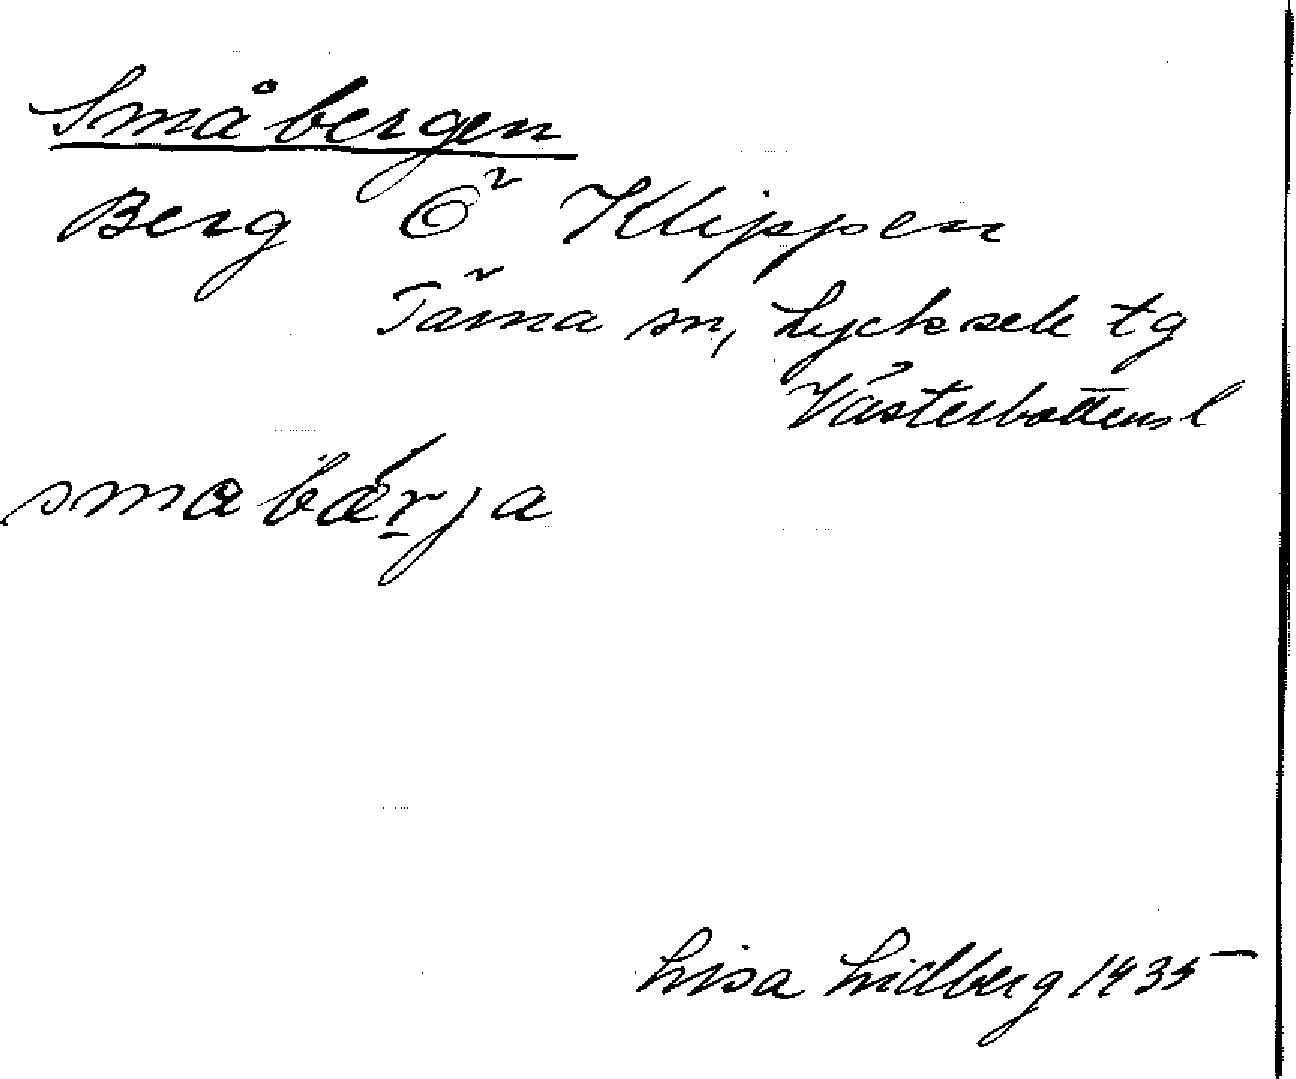 Småbergen
Berg Ö Klippen
Tärna sn, Lycksele tg
Västerbottens l
smabærja
Lisa Lidberg 1935